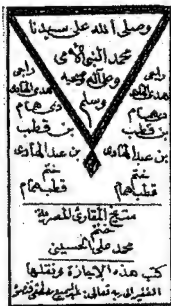 وصلى الله على سيدنا
محمد النبي الأمي
وعلى آله وصحبه
وسلم
راجي
عبد الهادي
دي همام
بن قطب
بن عبد الهادي
ختم
قطب همام
راجي
دي همام
بن قطب
بن عبد الهادي
ختم
قطب همام
شيخ المقارئ المصرية
ختم
محمد علي الحسيني
كتب هذه الاجازة ونقلها
الفقير إليه تعالى